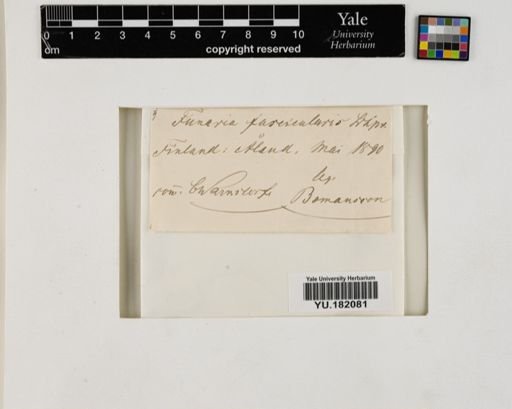 0 1 2 3 4 5 6 7 8 9 10
cm
copyright reserved
Yale
University
Herbarium
Funaria fascicularis Schpr.
Finland: Åland. Mai 1890
leg.
com. C. Warnstorf. Bomansson
Yale University Herbarium
YU.182081